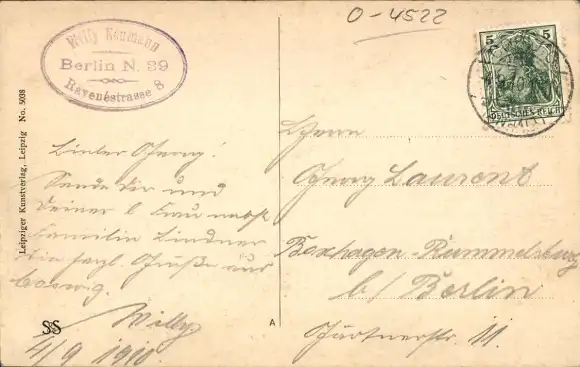 O-4522
Willy Naumann
Berlin N. 39
Ravenéstrasse 8
5 5
DEUTSCHES REICH
Leipziger Kunstverlag, Leipzig No. 5038
Lieber Georg!
Sende Dir und
Deiner l Frau nebst
Familie Lindner
die herzl. Grüße aus
Willy
4/9 1910.
SS
A
Herrn
Georg Laurent
Boxhagen-Rummelsburg
b/ Berlin
Gärtnerstr. 11.